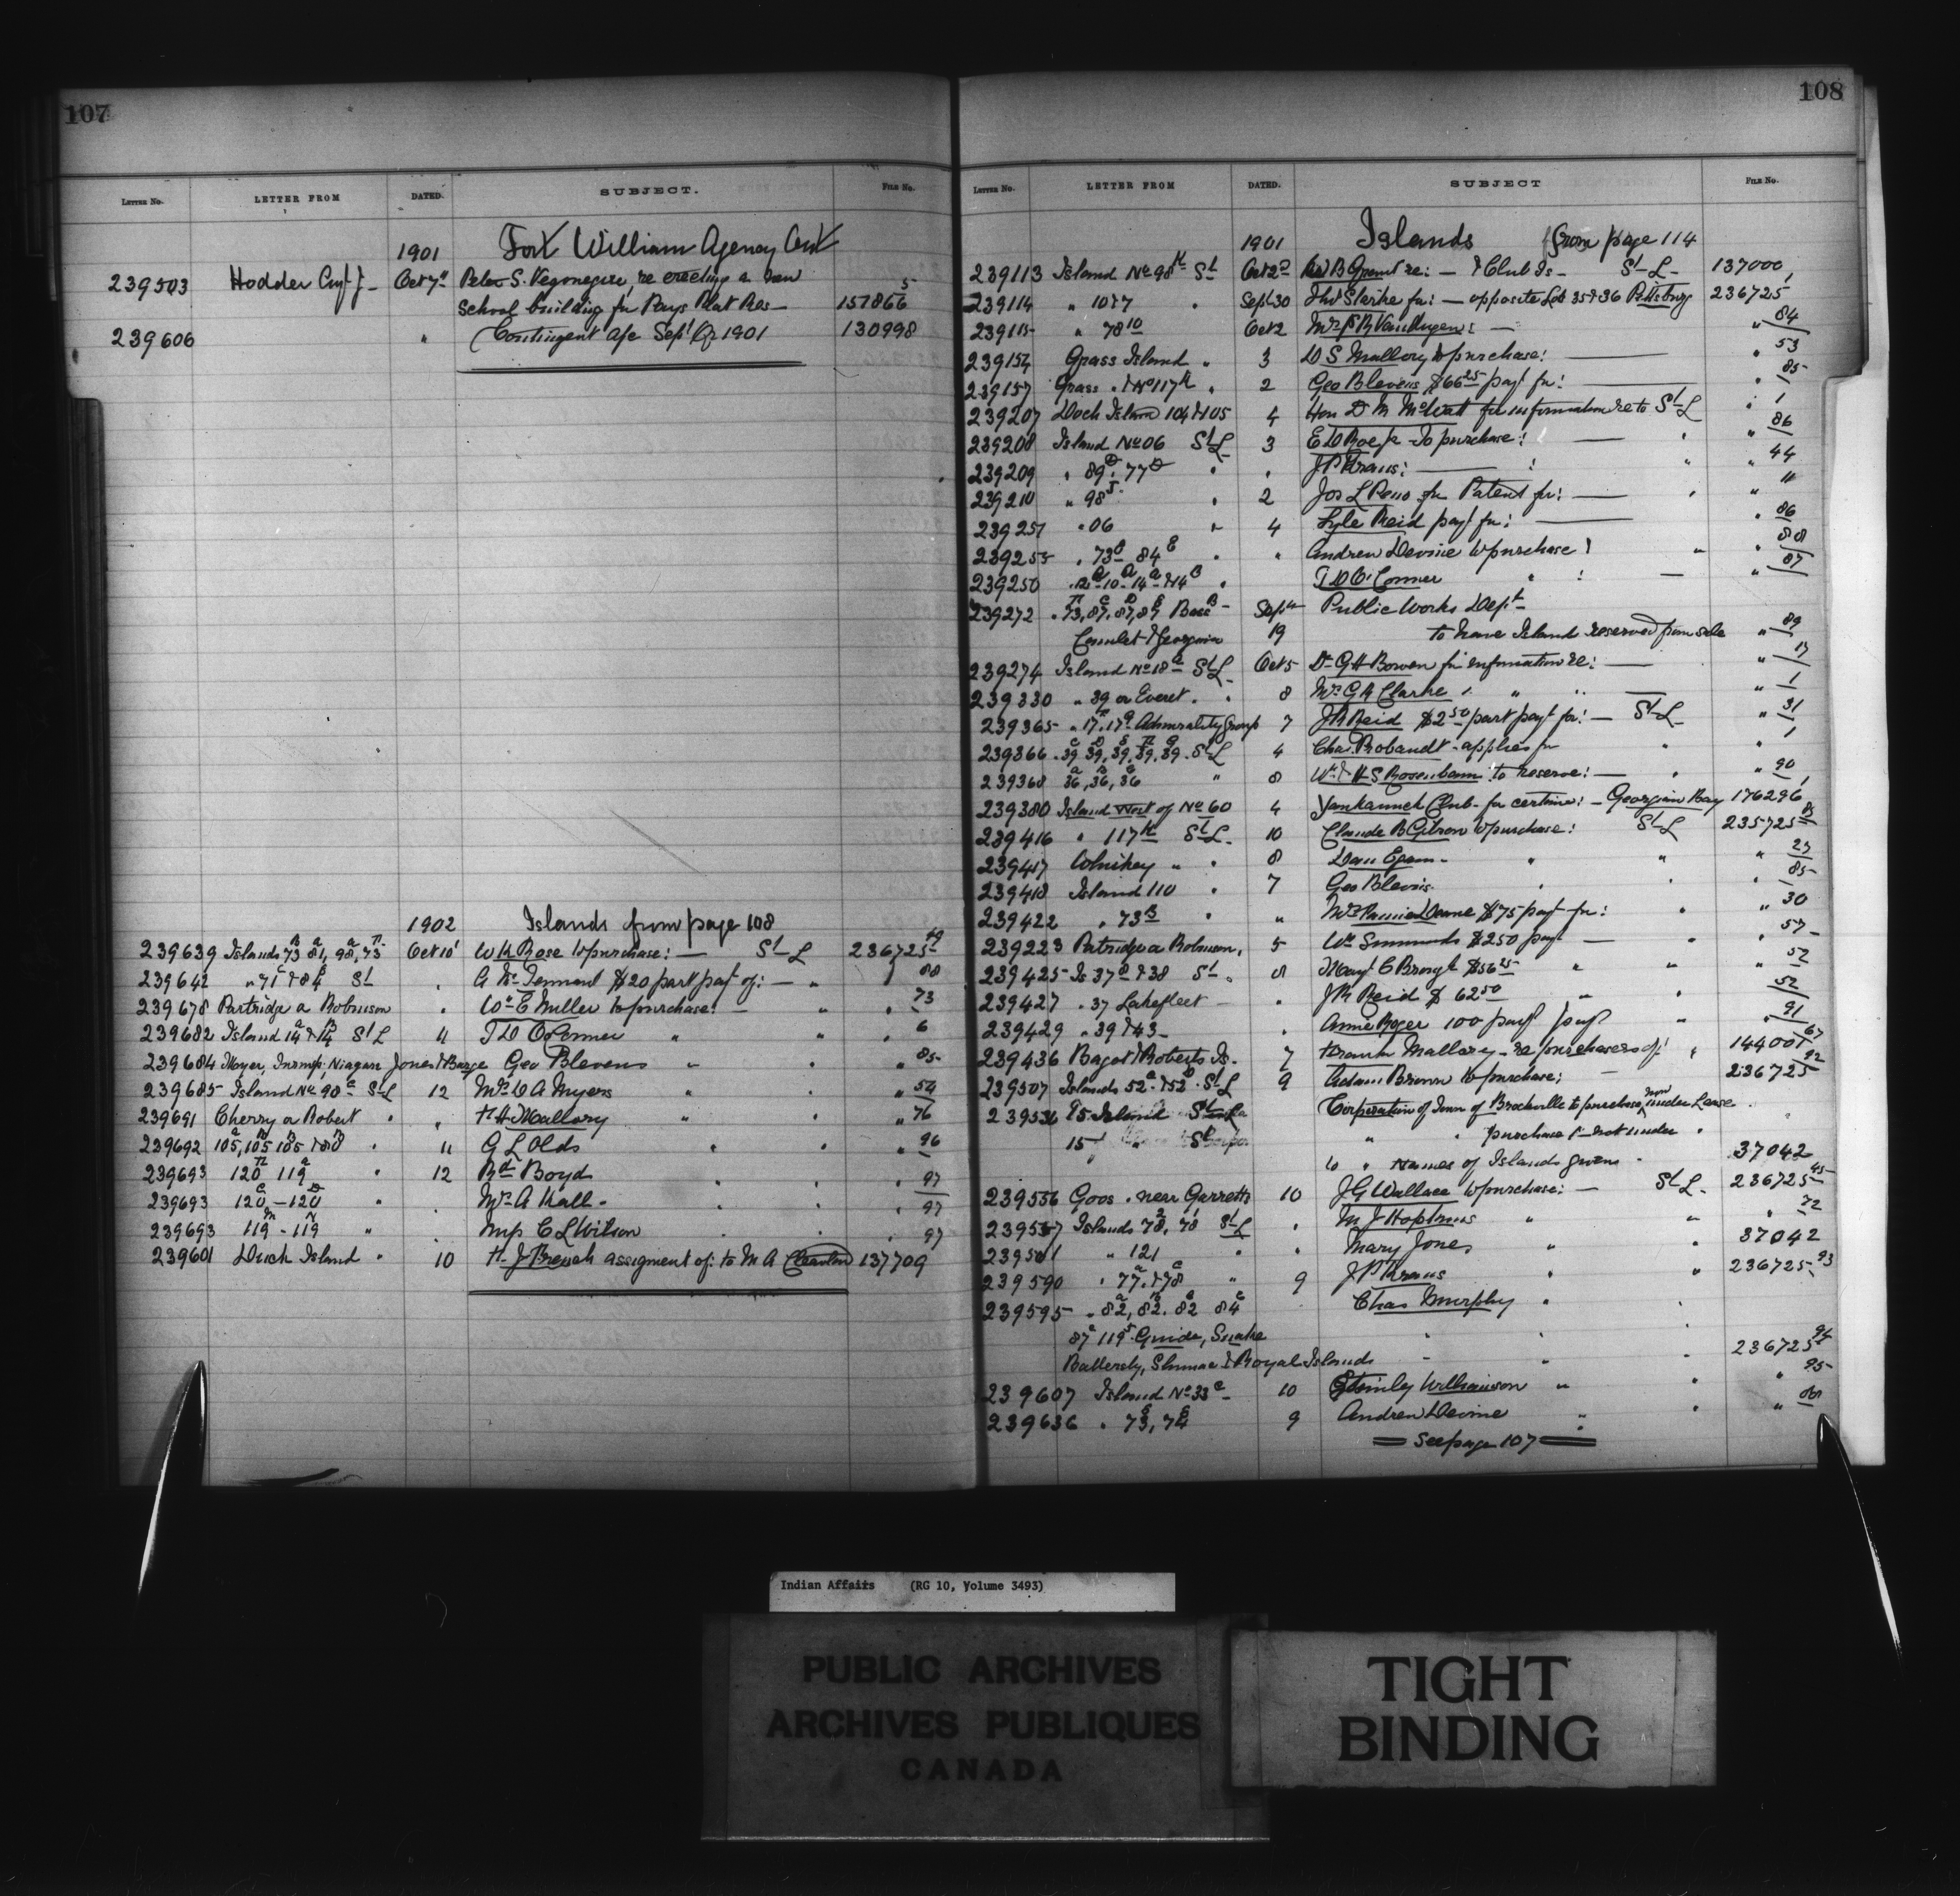 107
LETTER No. LETTER FROM DATED. SUBJECT. FILE No.
1901 Fort William Agency Ont
239503 Hodder Oct 7 Peter S. re erecting a new
school building for Pays Plat Res — 157866 5
239606 " Contingent a/c Sept Qr 1901 130998
1902 Islands from page 108
239639 Islands 73 81, 98, 73 Oct 10 W H Rose to purchase: — St L 236725
239642 " 71 & 84 St A Mc Tennard $20 part payt of: — " 88
239678 Partridge or Robinson " Wm E Miller to purchase! — " 73
239682 Island 14 & 14 St L 11 T D O'Connor " " 6
239684 Moyer, Niagara Jones & Barge Geo Blevens " " 85
239685 Island No 90 St L 12 Mrs W A Myers " 54
239691 Cherry or Robert " " H Mallory " " 76
239692 105, 105 105 & 80 " 11 G L Olds " " 96
239693 120 119 " 12 Rd Boyd " " 97
239693 120 — 120 " Mrs A Hall - " 97
239693 119 - 119 " Miss C L Wilson " 97
239601 Duck Island " 10 H J French assigment of: to M A 137709
108
LETTER No. LETTER FROM DATED. SUBJECT FILE No.
1901 Islands from page 114
239113 Island No 98 St Oct 2 re: — & Club Is — St L — 137000
239114 " 10 & 7 " Sept 30 for: — opposite Lot 35 & 36 Pittsburg 236725
239115 " 78 10 Oct 2 Mrs — " 84
239154 Grass Island " 3 W S Mallory to purchase: — " 53
239157 Grass " & No 117 " 2 Geo Blevens $66 25 payt for: " 85
239207 Dock Island 104 & 105 4 Hon for information re to St L " 1
239208 Island No 06 St L 3 to purchase: — " 86
239209 " 89, 77 " " J P Kraus: — " 44
239210 " 98 " 2 Jos L Reno for Patent for: — " "
239251 " 06 " 4 Lyle Reid payt for: — " 86
239255 " 73 84 " " Andrew Devine to purchase! " 88
239250 10 - 14 & 14 " T D O'Connor " : — " 87
239272 73, 87, 87, 87 Sept Public Works Dept
& Georgina 19 to have Island reserved from sale " 89
239274 Island No 18 St L Oct 5 Dr G H Bowen for information re: — " 17
239330 " 39 or Everet " 8 Mrs G H Clarke " " — " 1
239365 " 17, 17 Admiralty Group 7 J R Reid $2 50 part payt for: — St L " 31
239366 39 39, 39, 39, 39 St L 4 Chas. Robandt - applies for " " 1
239368 36, 36, 36 " 8 Wm & H S Rosenbaum to reserve: — " 90
239380 Island West of No 60 4 Club - for certain: — Georgian Bay 176296
239416 " 117 St L 10 Claude B to purchase: St L 235725
239417 " " 8 Dan Egan - " " 23
239418 Island 110 " 7 Geo Blevins " " 85
239422 " 73 " " Mrs Deane $75 payt for: " 30
239223 Patridge or Robinson, 5 Wm Simmonds $250 payt — " 57
239425 Is 37 & 38 St " 8 $56 25 " " 52
239427 " 37 Lakefleet — " J R Reid $62 50 " " 52
239429 " 39 & 43 — " Anne Roger 100 payt " 91
239436 Bagot & Roberts Is. 7 Frank Mallory - re purchasers of: " 144001 67
239507 Islands 52 & 52 St L 9 Adam Brown to purchase; — 236725 92
239536 15 Island Corporation of Town of Brockville to purchase now under Lease
15 " " " purchase not under "
10 " Names of Islands given - 37042
239556 Goos " near Garretts 10 J G Wallace to purchase: — St L 236725 45
239557 Islands 78, 78 St L " M J Hopkins " " 72
239581 " 121 " " Mary Jones " " 37042
239590 " 77, & 78 " 9 J P Kraus " " 236725 93
239595 " 82, 82, 82 84 Chas Murphy "
87 119 Guide, Snake
& Royal Islands " " 236725 94
239607 Island No 33 10 Stinley Williamson " " 95
239636 " 73, 74 9 Andrew Devine " " "
See page 107
Indian Affairs (RG 10, Volume 3493)
PUBLIC ARCHIVES
ARCHIVES PUBLIQUES
CANADA
TIGHT
BINDING